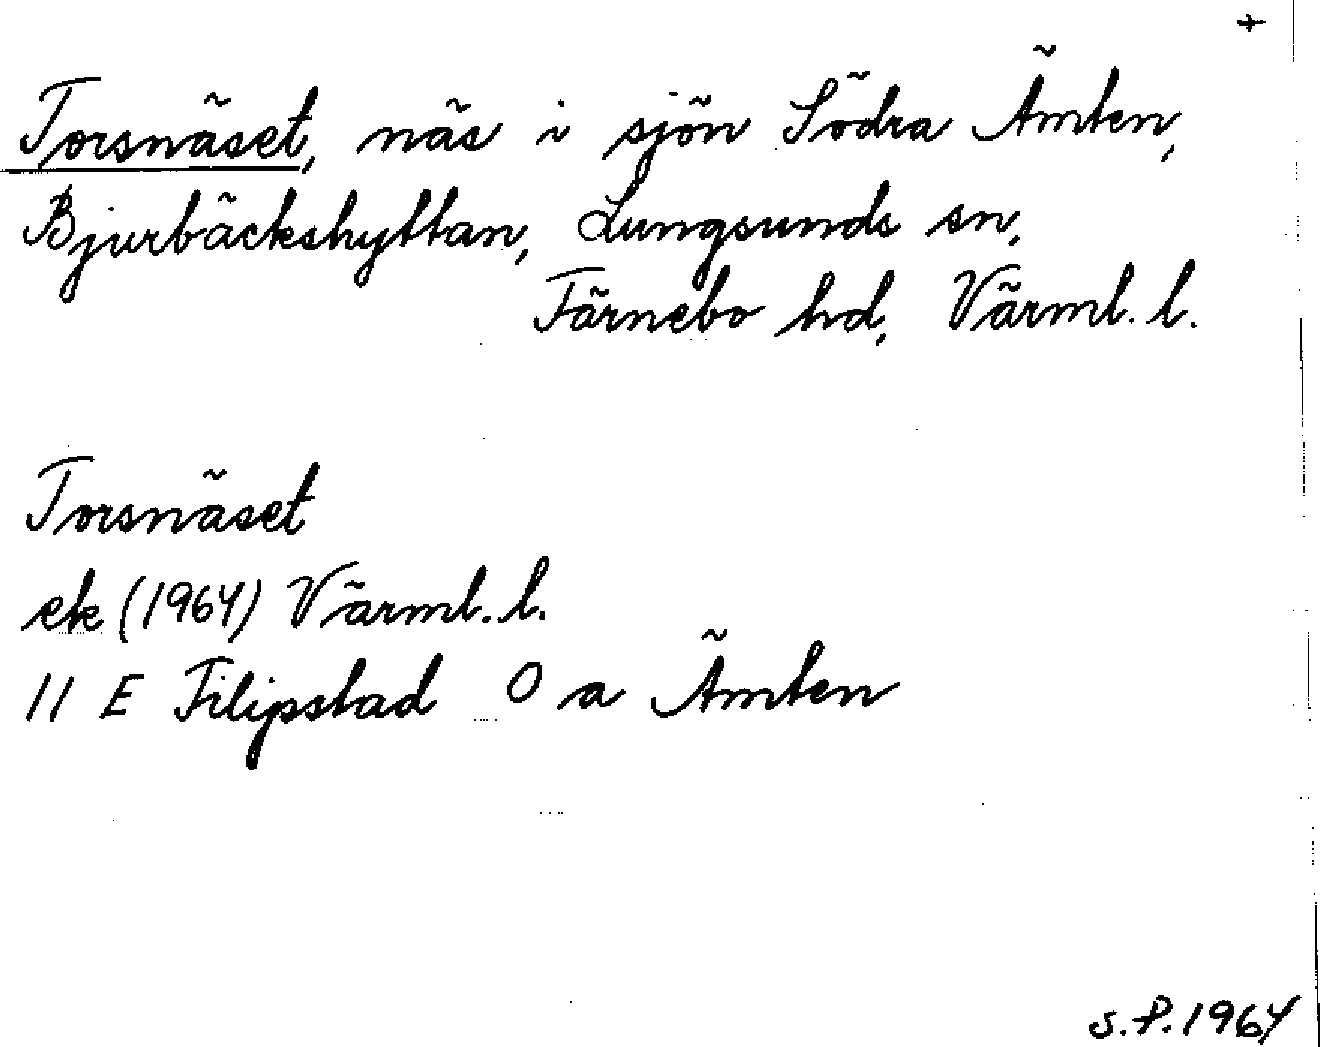 +
Torsnäset, näs i sjön Södra Ämten,
Bjurbäckshyttan, Lungsunds sn,
Färnebo hd, Värml. l.
Torsnäset
ek (1964) Värml. l.
11 E Filipstad 0 a Ämten
S.P. 1964